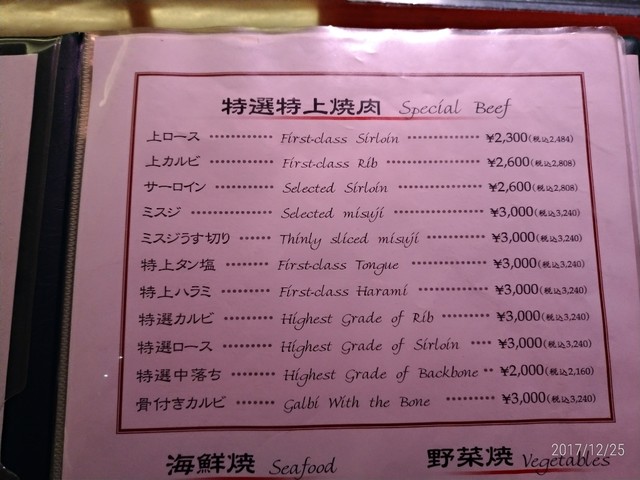 特選特上焼肉 Special Beef
上ロース ・・・・・・・・・・・ First-class Sirloin ・・・・・・・・・・・・ ¥2,300(税込2,484)
上カルビ ・・・・・・・・・・・ First-class Rib ・・・・・・・・・・・・・・ ¥2,600(税込2,808)
サーロイン ・・・・・・・・・ Selected Sirloin ・・・・・・・・・・・・・ ¥2,600(税込2,808)
ミスジ ・・・・・・・・・・・・・ Selected misuji ・・・・・・・・・・・・・ ¥3,000(税込3,240)
ミスジうす切り ・・・・・ Thinly sliced misuji ・・・・・・・・・ ¥3,000(税込3,240)
特上タン塩 ・・・・・・・・ First-class Tongue ・・・・・・・・・・・・ ¥3,000(税込3,240)
特上ハラミ ・・・・・・・・ First-class Harami ・・・・・・・・・・・ ¥3,000(税込3,240)
特選カルビ ・・・・・・・・ Highest Grade of Rib ・・・・・・・・ ¥3,000(税込3,240)
特選ロース ・・・・・・・・ Highest Grade of Sirloin ・・・・ ¥3,000(税込3,240)
特選中落ち ・・・・・・・・ Highest Grade of Backbone ・・ ¥2,000(税込2,160)
骨付きカルビ ・・・・・・ Galbi With the Bone ・・・・・・・・・ ¥3,000(税込3,240)
海鮮焼 Seafood 野菜焼 Vegetables
2017/12/25